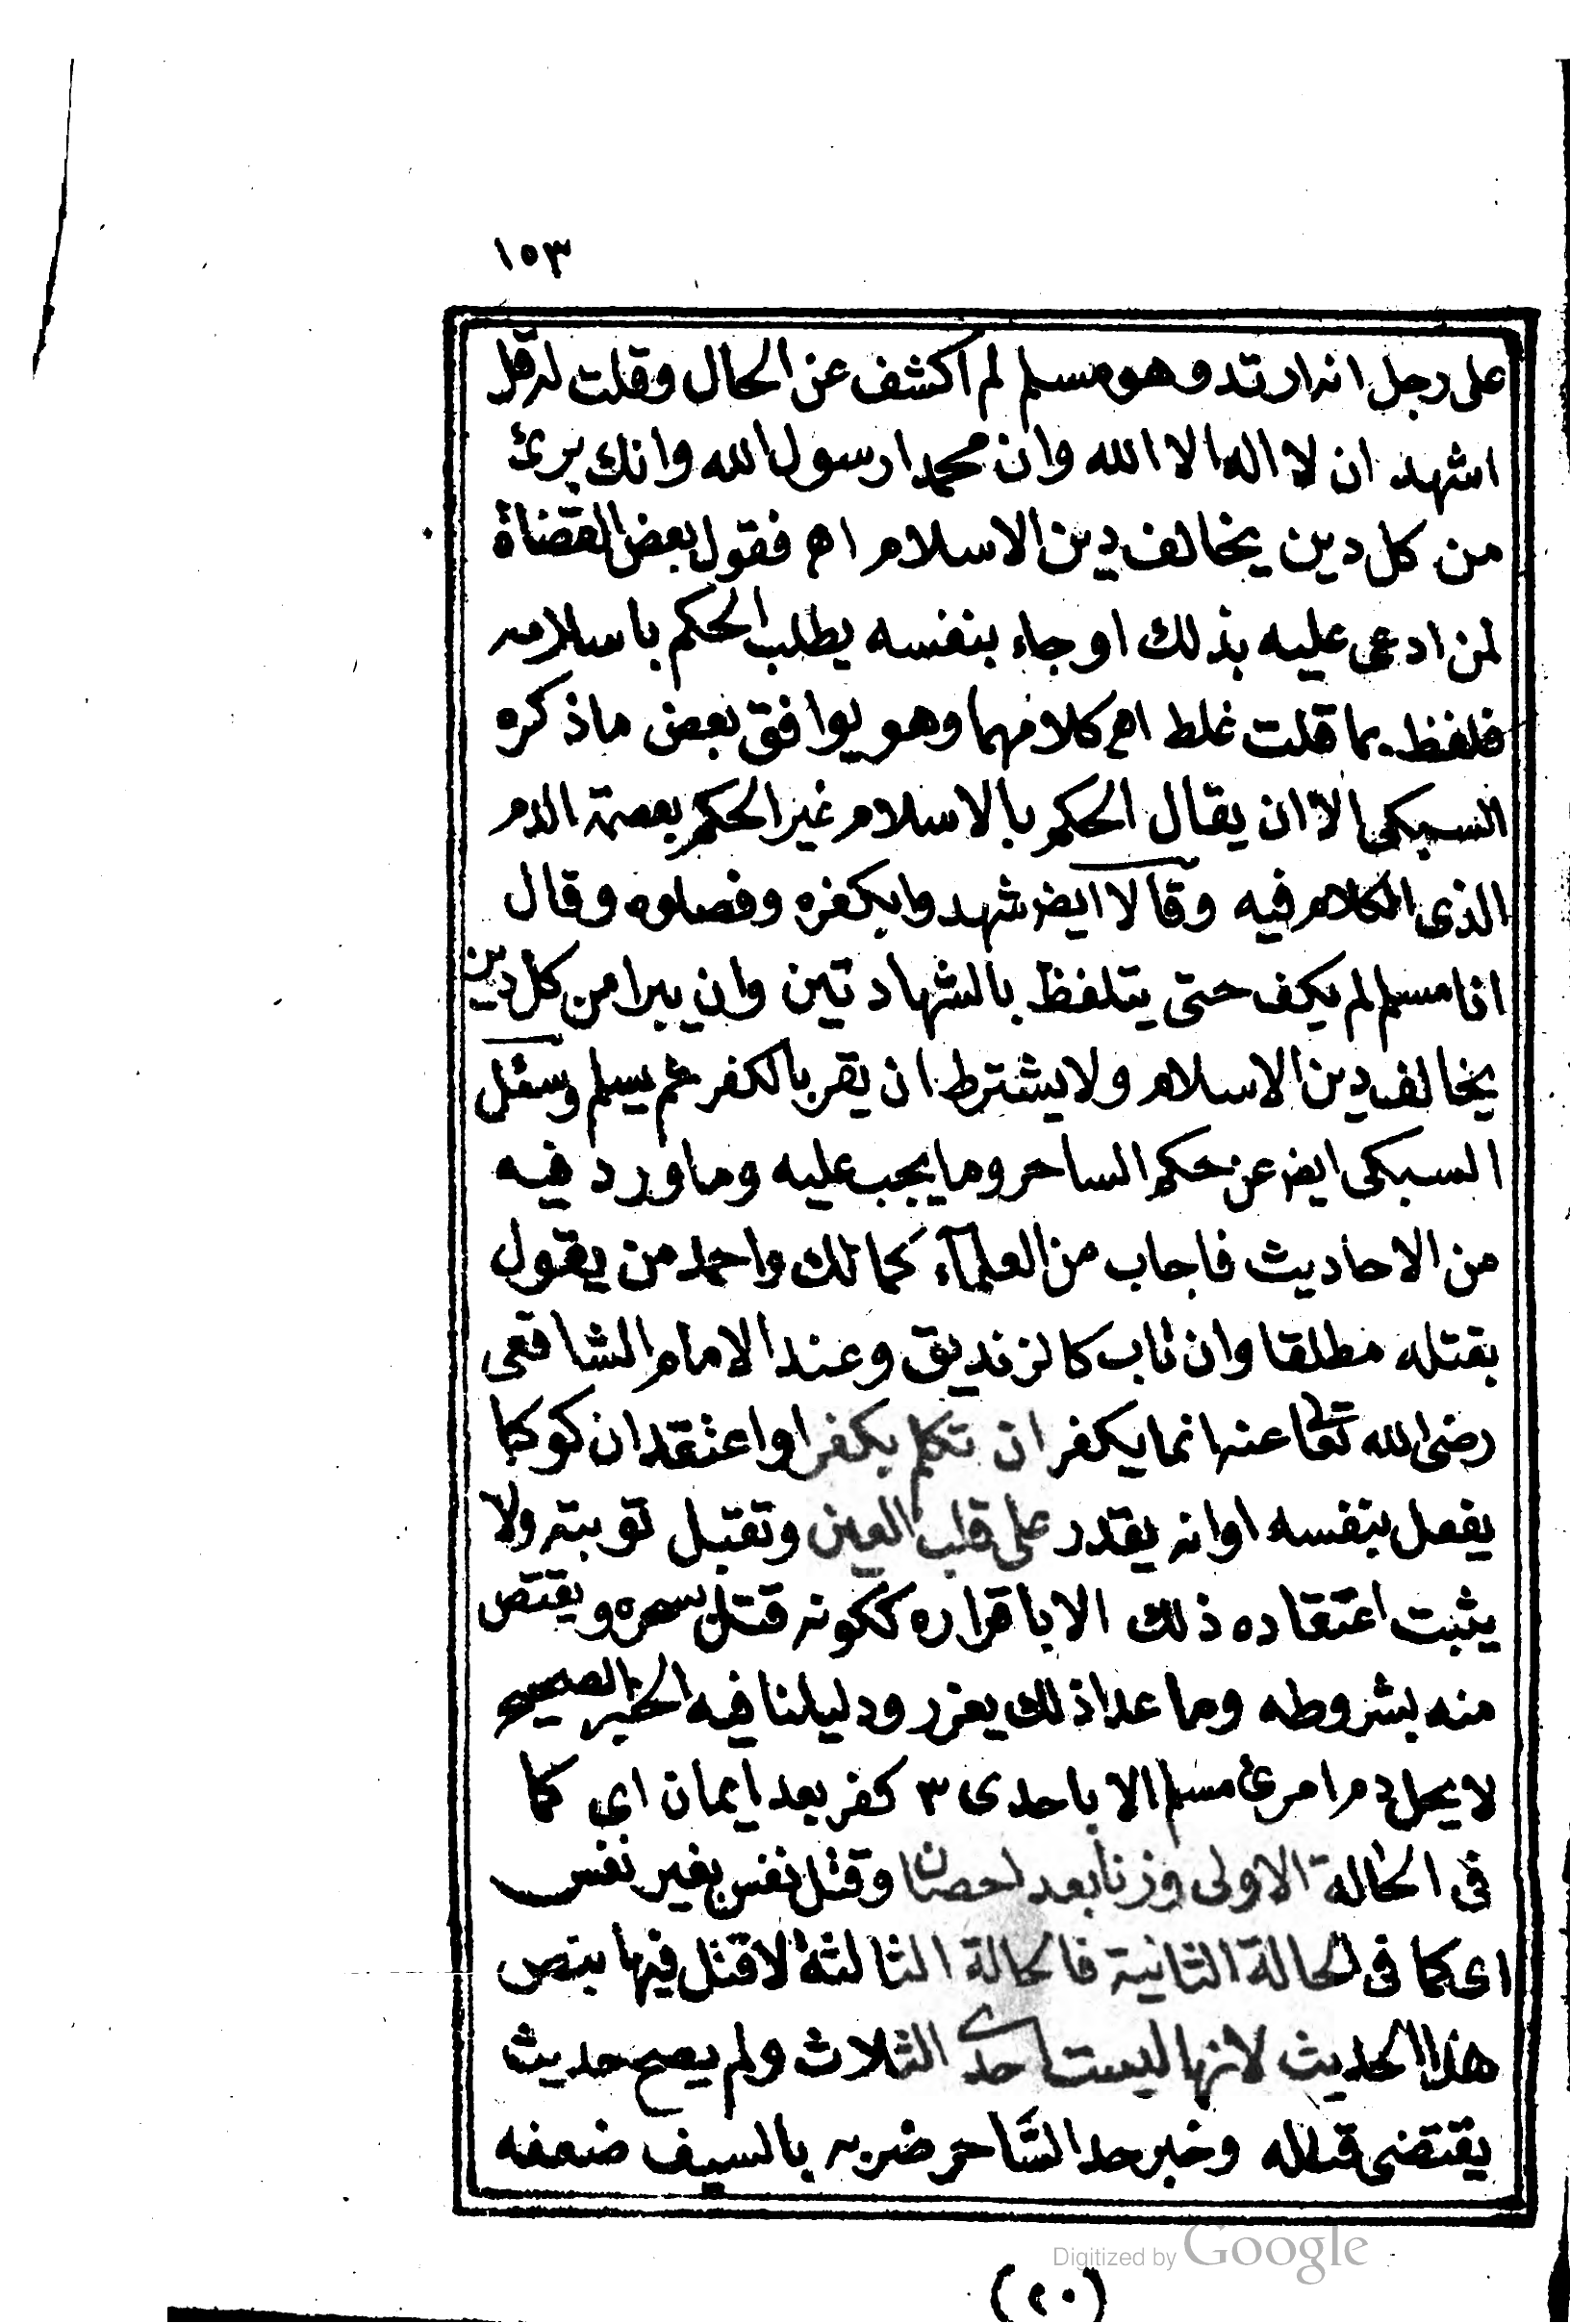 ١٥٣
على رجل انه ارتد وهو مسلم لم اكشف عن الحال وقلت له قل
اشهد ان لا اله الا الله وان محمدا رسول الله وانك برئ
من كل دين يخالف دين الاسلام اه فقول بعض القضاة
لمن ادعى عليه بذلك او جاء بنفسه يطلب الحكم باسلامه
فلفظ بما قلت غلط اه كلامهما وهو يوافق بعض ماذكره
السبكى الا ان يقال الحكم بالاسلام غير الحكم بعصمة الدم
الذى الكلام فيه وقالا ايض شهدوا بكفره وفصلوه وقال
انا مسلم لم يكف حتى يتلفظ بالشهادتين وان يبرا من كل دين
يخالف دين الاسلام ولا يشترط ان يقر بالكفر ثم يسلم وسئل
السبكى ايض عن حكم الساحر وما يجب عليه وما ورد فيه
من الاحاديث فاجاب من العلمآء كمالك واحمد من يقول
بقتله مطلقا وان تاب كالزنديق وعند الامام الشافعى
رضى الله تعا عنه انما يكفر ان تكلم بكفر او اعتقد ان كوكبا
يفعل بنفسه اوانه يقدر على قلب العين وتقبل توبته ولا
يثبت اعتقاده ذلك الا باقراره ككونه قتل بسحره ويقتص
منه بشروطه وما عدا ذلك يعزر ودليلنا فيه الخبر الصحيح
لا يحل دم امرئ مسلم الا باحدى ٣ كفر بعد ايمان اى كما
فى الحالة الاولى وزنا بعد احصان وقتل نفس بغير نفس
اى كما فى الحالة الثانية فالحالة الثالثة لا قتل فيها بنص
هذا الحديث لانها ليست احدى الثلاث ولم يصح حديث
يقتضى قتله وخبر حد السَّاحر ضربه بالسيف ضعفه
Digitized by Google
(٢٠)